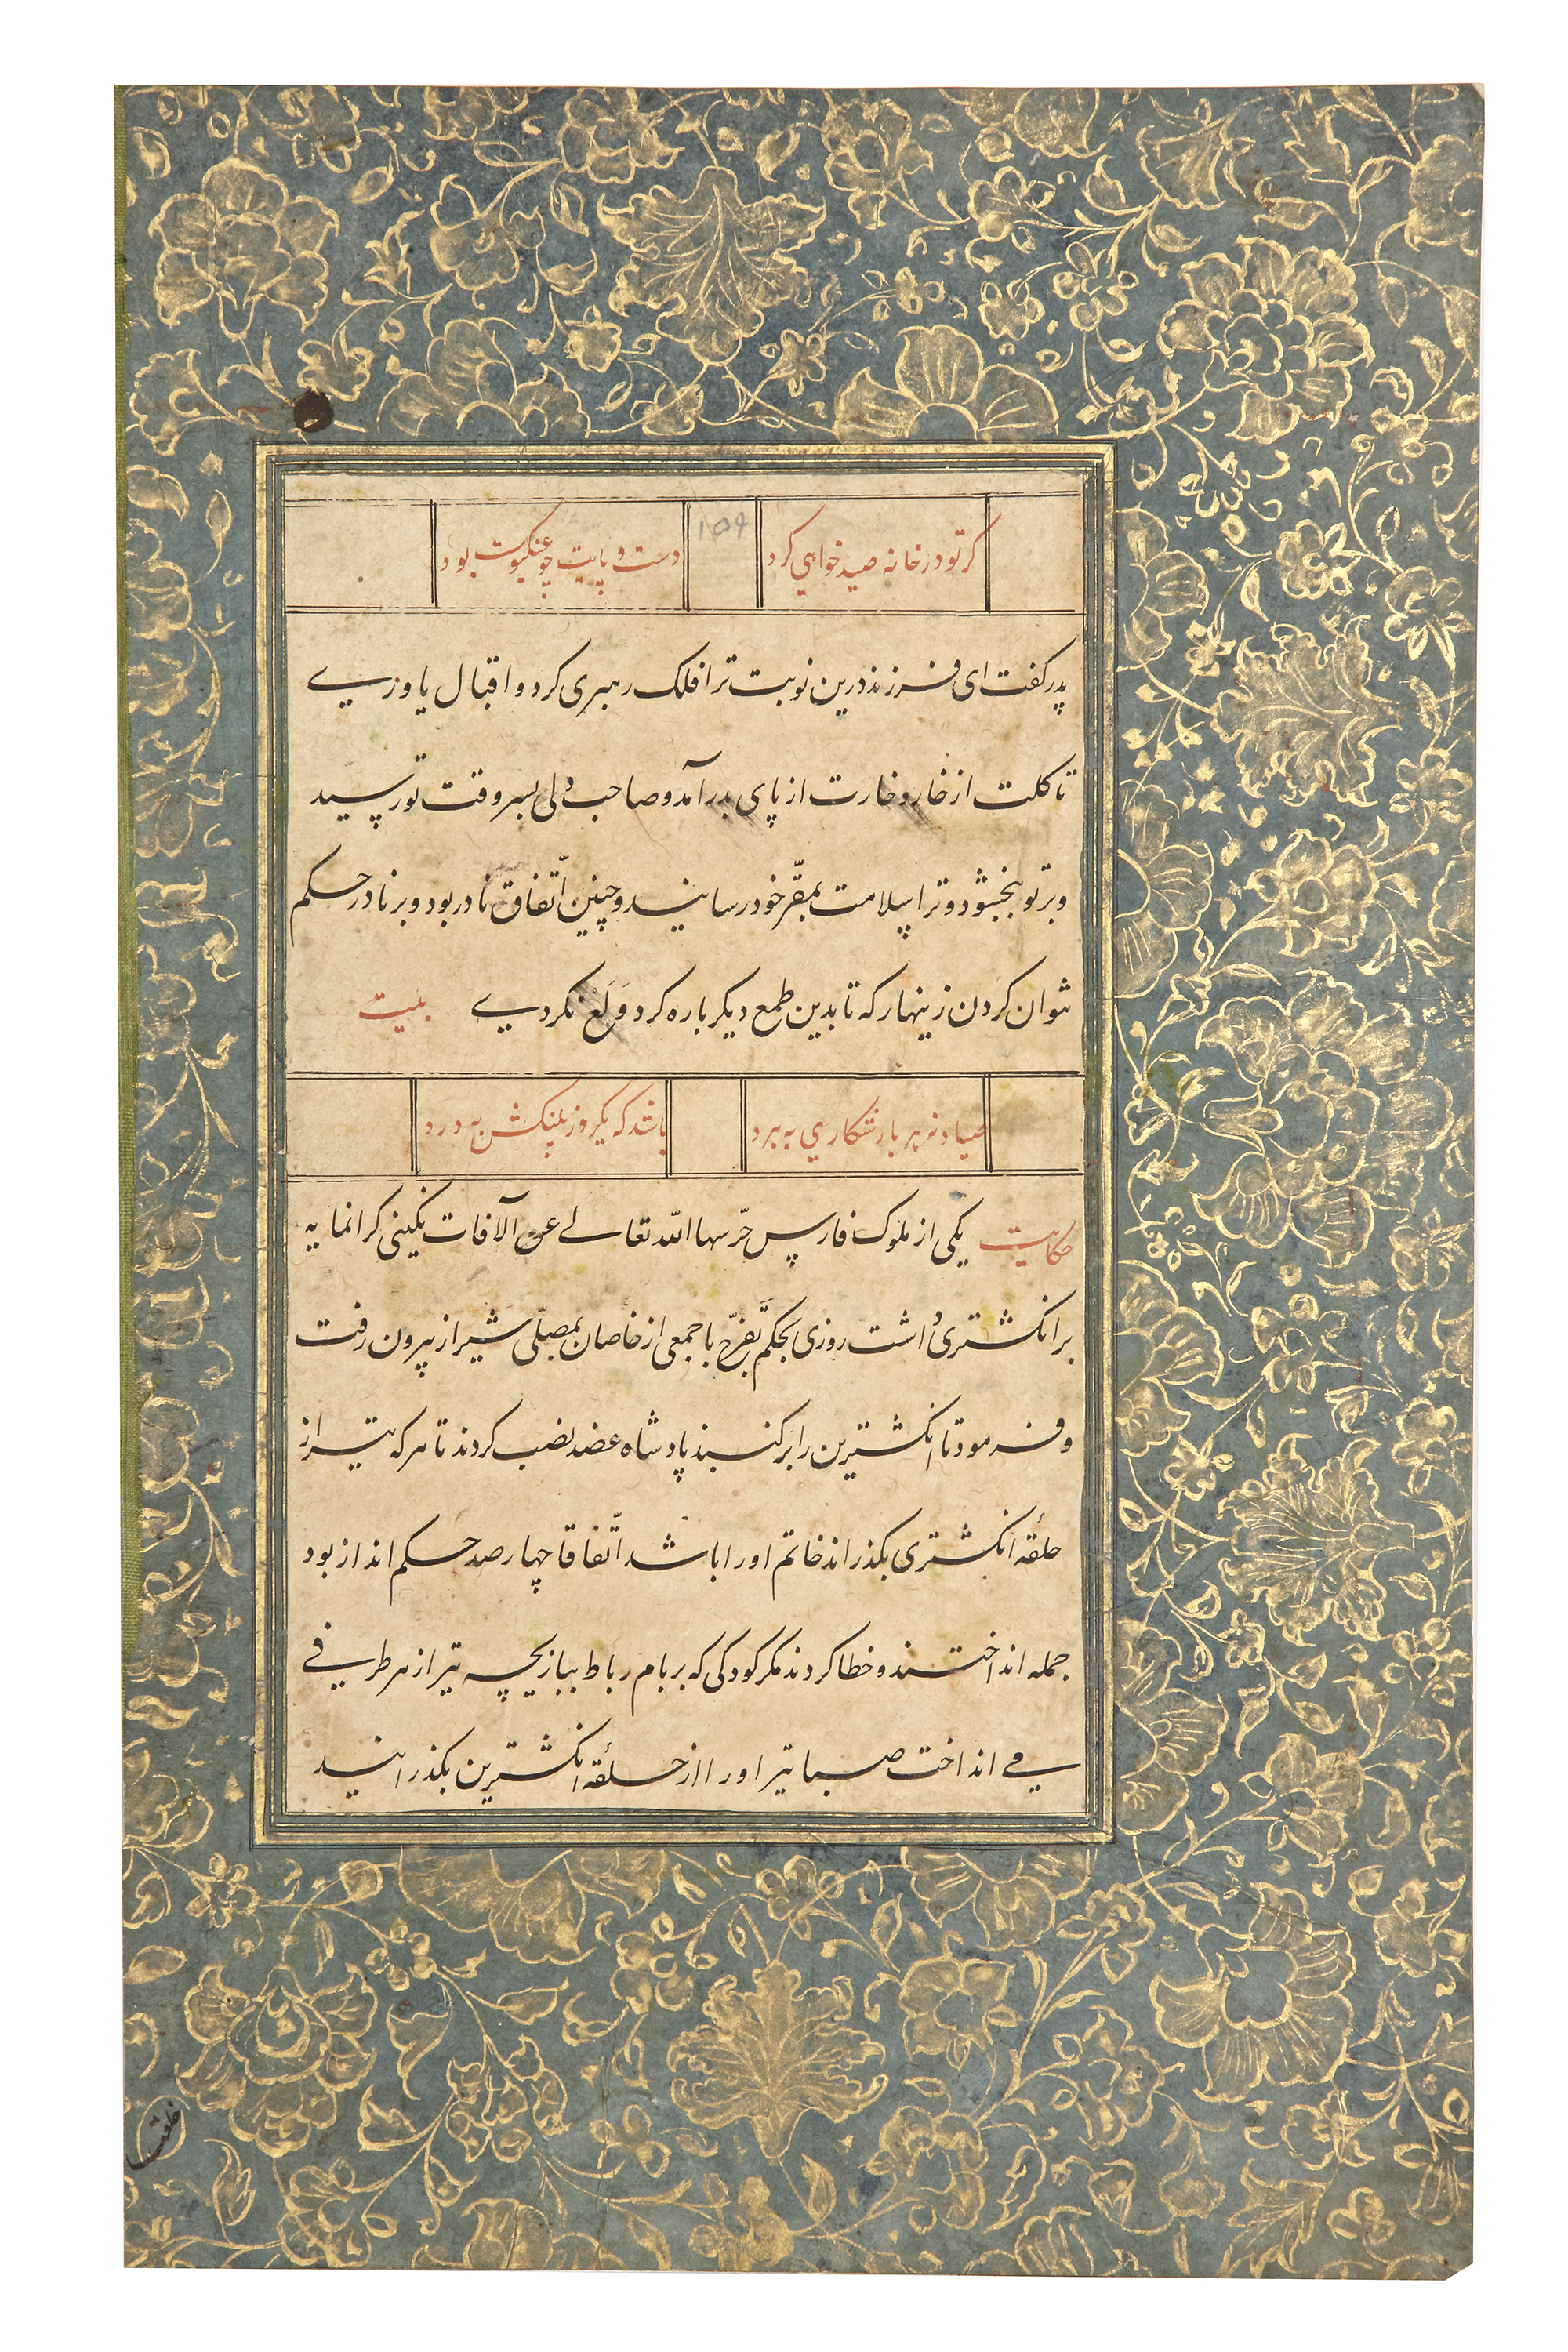 کر تو در خانه صید خواهی کرد دست و پایت چو عنکبوت بود
۱۵۹
پدر کفت ای فرزند درین نوبت ترا فلک رهبری کرد و اقبال یاوری
تا کلت از خار و خارت از پای بدر آمد و صاحب دلی بسر وقت تو رسید
و بر تو ببخشود و ترا بسلامت بمقرّ خود رسانید و چنین اتّفاق نادر بود و بر نادر حکم
نتوان کردن زینهار که تا بدین طمع دیکر باره کرد وَلَعْ نکردی بیت
صیاد نه هر بار شکاری ببرد باشد که یکروز پلنکش بدرد
حکایت یکی از ملوک فارس حرّسها الله تعالی عن الآفات نکینی کرانمایه
بر انکشتری داشت روزی بحکم تفرّج با جمعی از خاصان بمصلّی شیراز بیرون رفت
و فرمود تا انکشترین را بر کنبذ پادشاه عضد نصب کردند تا هر که تیر از
حلقه انکشتری بکذراند خاتم او را باشد اتّفاقا چهار صد حکم انداز بود
جمله انداختند و خطا کردند مکر کودکی که بر بام رباط ببازیچه تیر از هر طرفی
می انداخت صبا تیر او را از حلقه انکشترین بکذرانید
خلعت